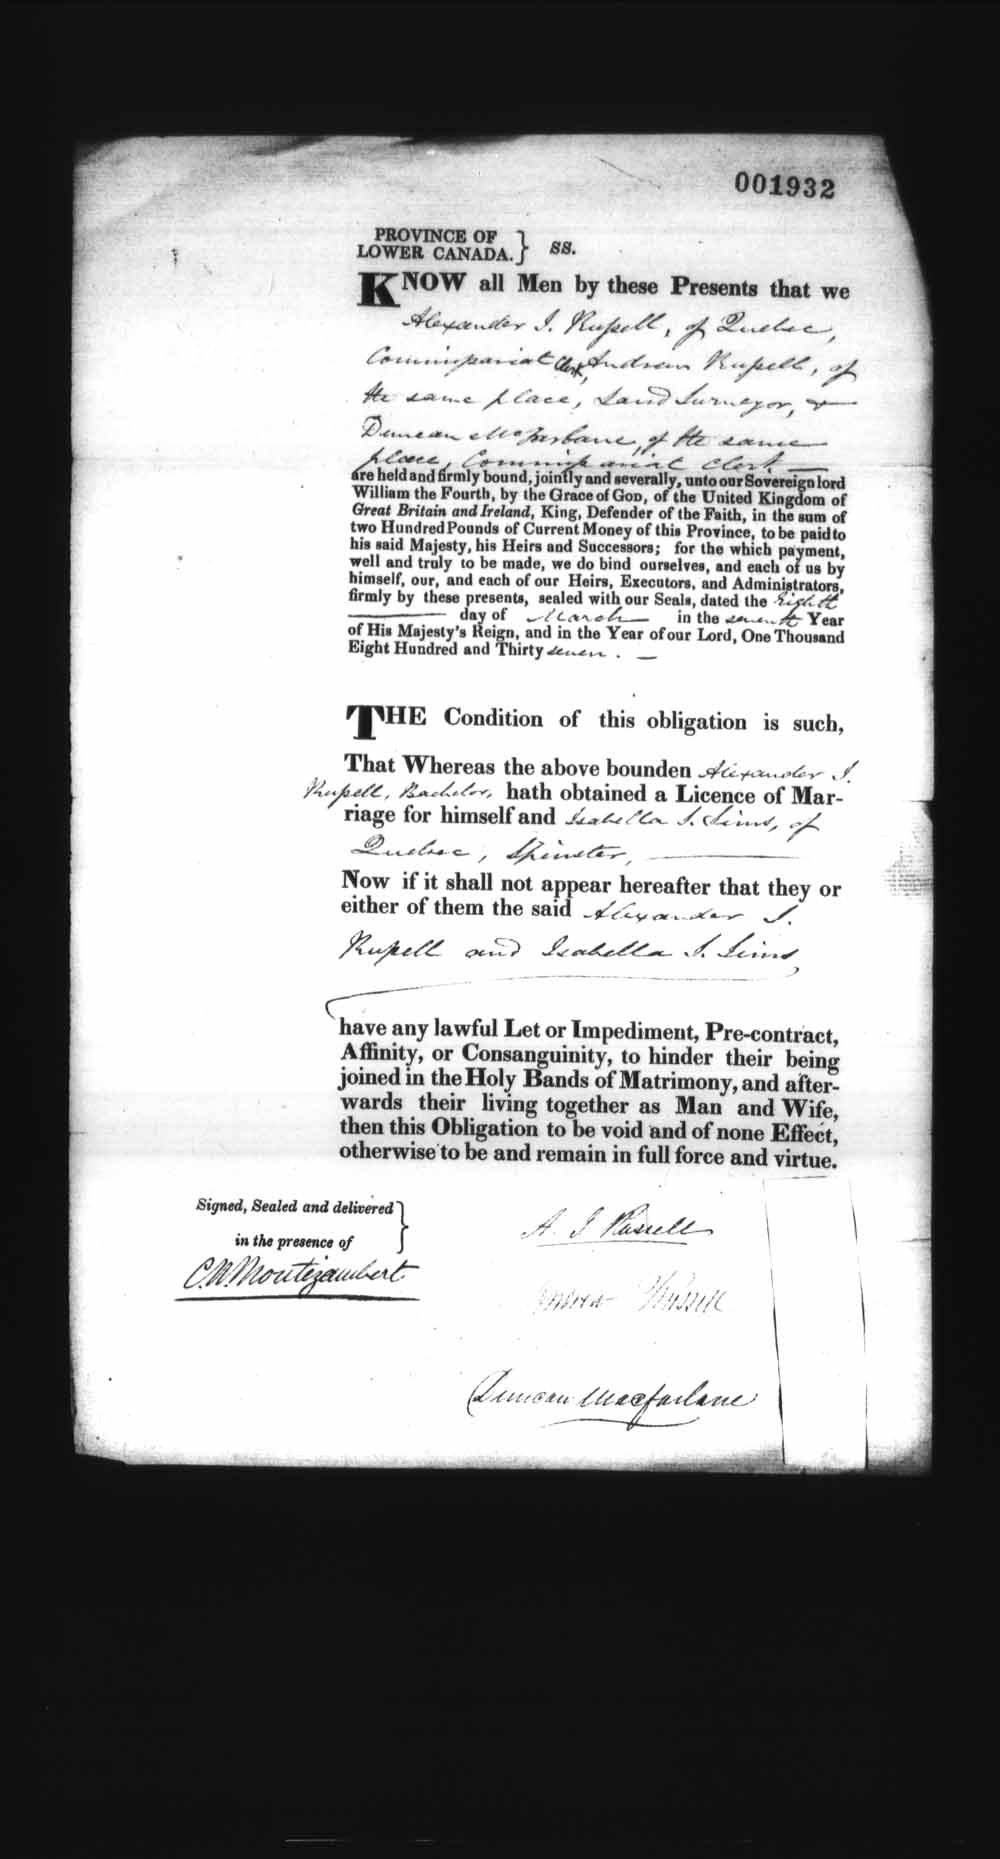 001932
PROVINCE OF
LOWER CANADA. } SS.
KNOW all Men by these Presents that we
Alexander J. Russell, of Quebec,
Commissariat Clerk, Andrew Russell, of
the same place, Land Surveyor, &
Duncan McFarlane, of the same
place, Commissariat Clerk
are held and firmly bound, jointly and severally, unto our Sovereign lord
William the Fourth, by the Grace of God, of the United Kingdom of
Great Britain and Ireland, King, Defender of the Faith, in the sum of
two Hundred Pounds of Current Money of this Province, to be paid to
his said Majesty, his Heirs and Successors; for the which payment,
well and truly to be made, we do bind ourselves, and each of us by
himself, our, and each of our Heirs, Executors, and Administrators,
firmly by these presents, sealed with our Seals, dated the Eighth
day of March in the seventh Year
of His Majesty's Reign, and in the Year of our Lord, One Thousand
Eight Hundred and Thirty seven.
THE Condition of this obligation is such,
That Whereas the above bounden Alexander J.
Russell, Bachelor, hath obtained a Licence of Mar-
riage for himself and Isabella S. Sims, of
Quebec, Spinster,
Now if it shall not appear hereafter that they or
either of them the said Alexander J.
Russell and Isabella S. Sims,
have any lawful Let or Impediment, Pre-contract,
Affinity, or Consanguinity, to hinder their being
joined in the Holy Bands of Matrimony, and after-
wards their living together as Man and Wife,
then this Obligation to be void and of none Effect,
otherwise to be and remain in full force and virtue.
Signed, Sealed and delivered }
in the presence of
C. N. Montizambert
A. J. Russell
Andrew Russell
Duncan Macfarlane